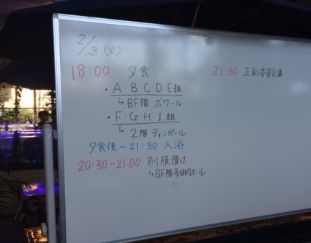 2/3 (火)
18:00 夕食
・A・B・C・D・E組
↳BF階 ボワール
・F・G・H・I組
↳2階 ティンガール
夕食後〜21:30 入浴
20:30~21:00 制服預け
↳BF階多目的ホール
21:30 正副委員会議